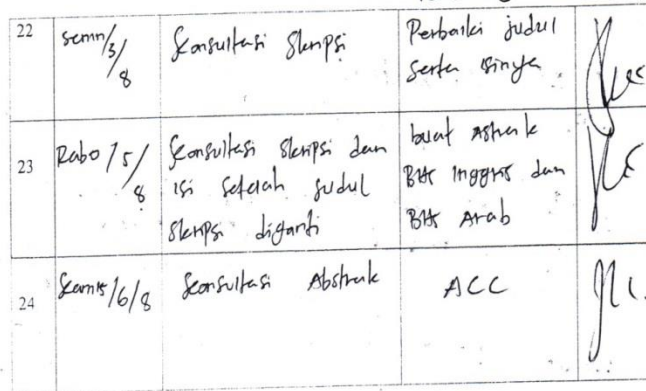 22 Senin/3/8 Konsultasi Skripsi Perbaiki judul
serta isinya
23 Rabo/5/8 Konsultasi Skripsi dan
isi setelah judul
skripsi diganti
buat Abstrak
BHS Inggris dan
BHS Arab
24 Kamis/6/8 Konsultasi Abstrak ACC